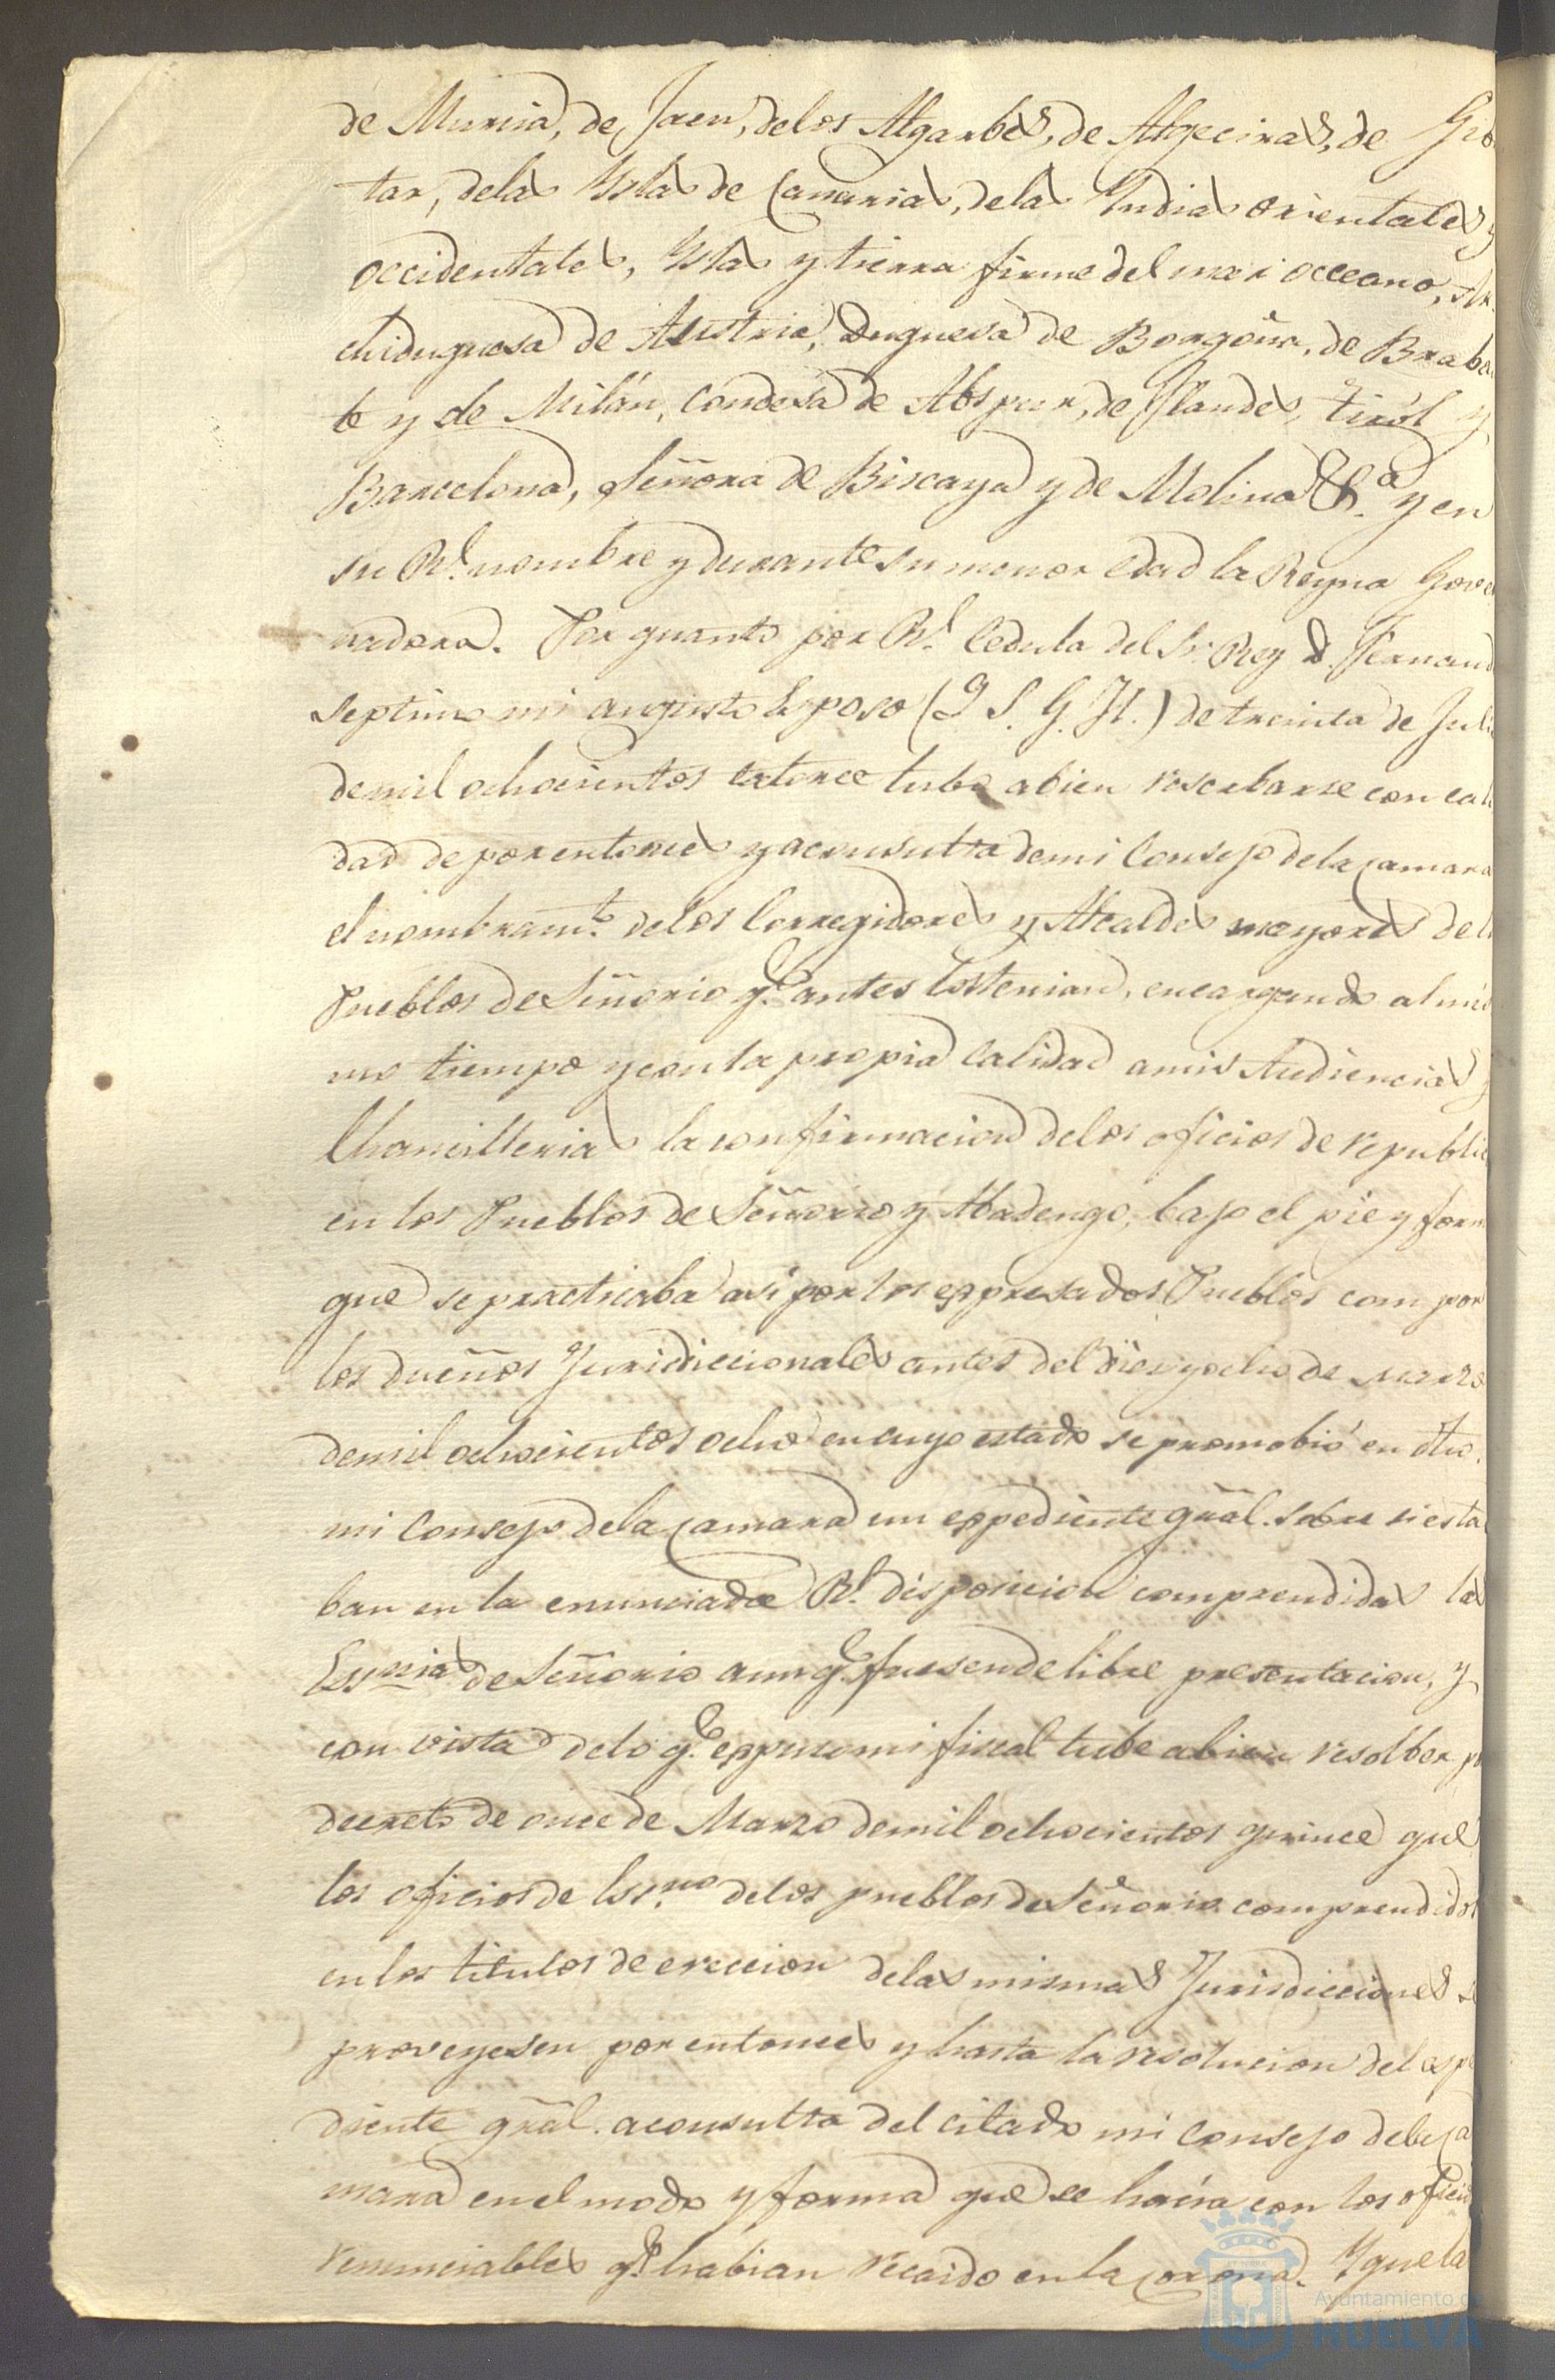 de Murcia, de Jaen, delos Algarbes, de Algeciras, de Gib
tar, delas Yslas de Canarias, delas Yndias orientales y
occidentales, Yslas y tierra firme del mar occeano, Ar
chiduquesa de Austria, Duquesa de Borgoña, de Braban
te y de Milán, condesa de Abspur, de Flandes, tiról y
Barcelona, Señora de Biscaya y de Molina &.ª y en
su Rl. nombre y durante su menor edad la Reyna Gover
nadora. Por quanto por Rl. Cedula del Sr. Rey D. Fernand
septimo mi augusto Esposo (Q. S. G. H.) de treinta de Juli
demil ochocientos catorce tubo abien reserbarse con cali
dad de por entonces y aconsulta demi Consejo dela camara
el nombramto. delos Corregidores y Alcaldes mayores delo
Pueblos de Señorio qe. antes los tenian, encargando al mis
mo tiempo y con la propia calidad amis Audiencias y
Chancillerias la confirmacion delos oficios de republic
en los Pueblos de Señorio y Abadengo, bajo el pie y form
que se practicaba asi por los eppresados Pueblos com por
los dueños Juridiccionales antes del diez y ocho de marzo
demil ochocientos ocho en cuyo estado se promobió en dho.
mi Consejo dela camara un eppediente grãl. sobre si esta
ban en la enunciada Rl. disposicion comprendidas las
Essnias de Señorio aunqe. fuesen de libre presentacion, y
con vista delo qe. eppuso mi fiscal tube abien resolber po
decreto de once de Marzo demil ochocientos quince que
los oficios de Essno. delos pueblos de Señorio comprendidos
en los titulos de ereccion delas mismas Jurisdicciones se
proveyesen por entonces y hasta la resolucion del espe
diente grãl. aconsulta del citado mi Consejo dela ca
mara en el modo y forma que se hacia con los oficio
renunciables qe. habian recaido en la corona. Y que la
Ayuntamiento de
HUELVA